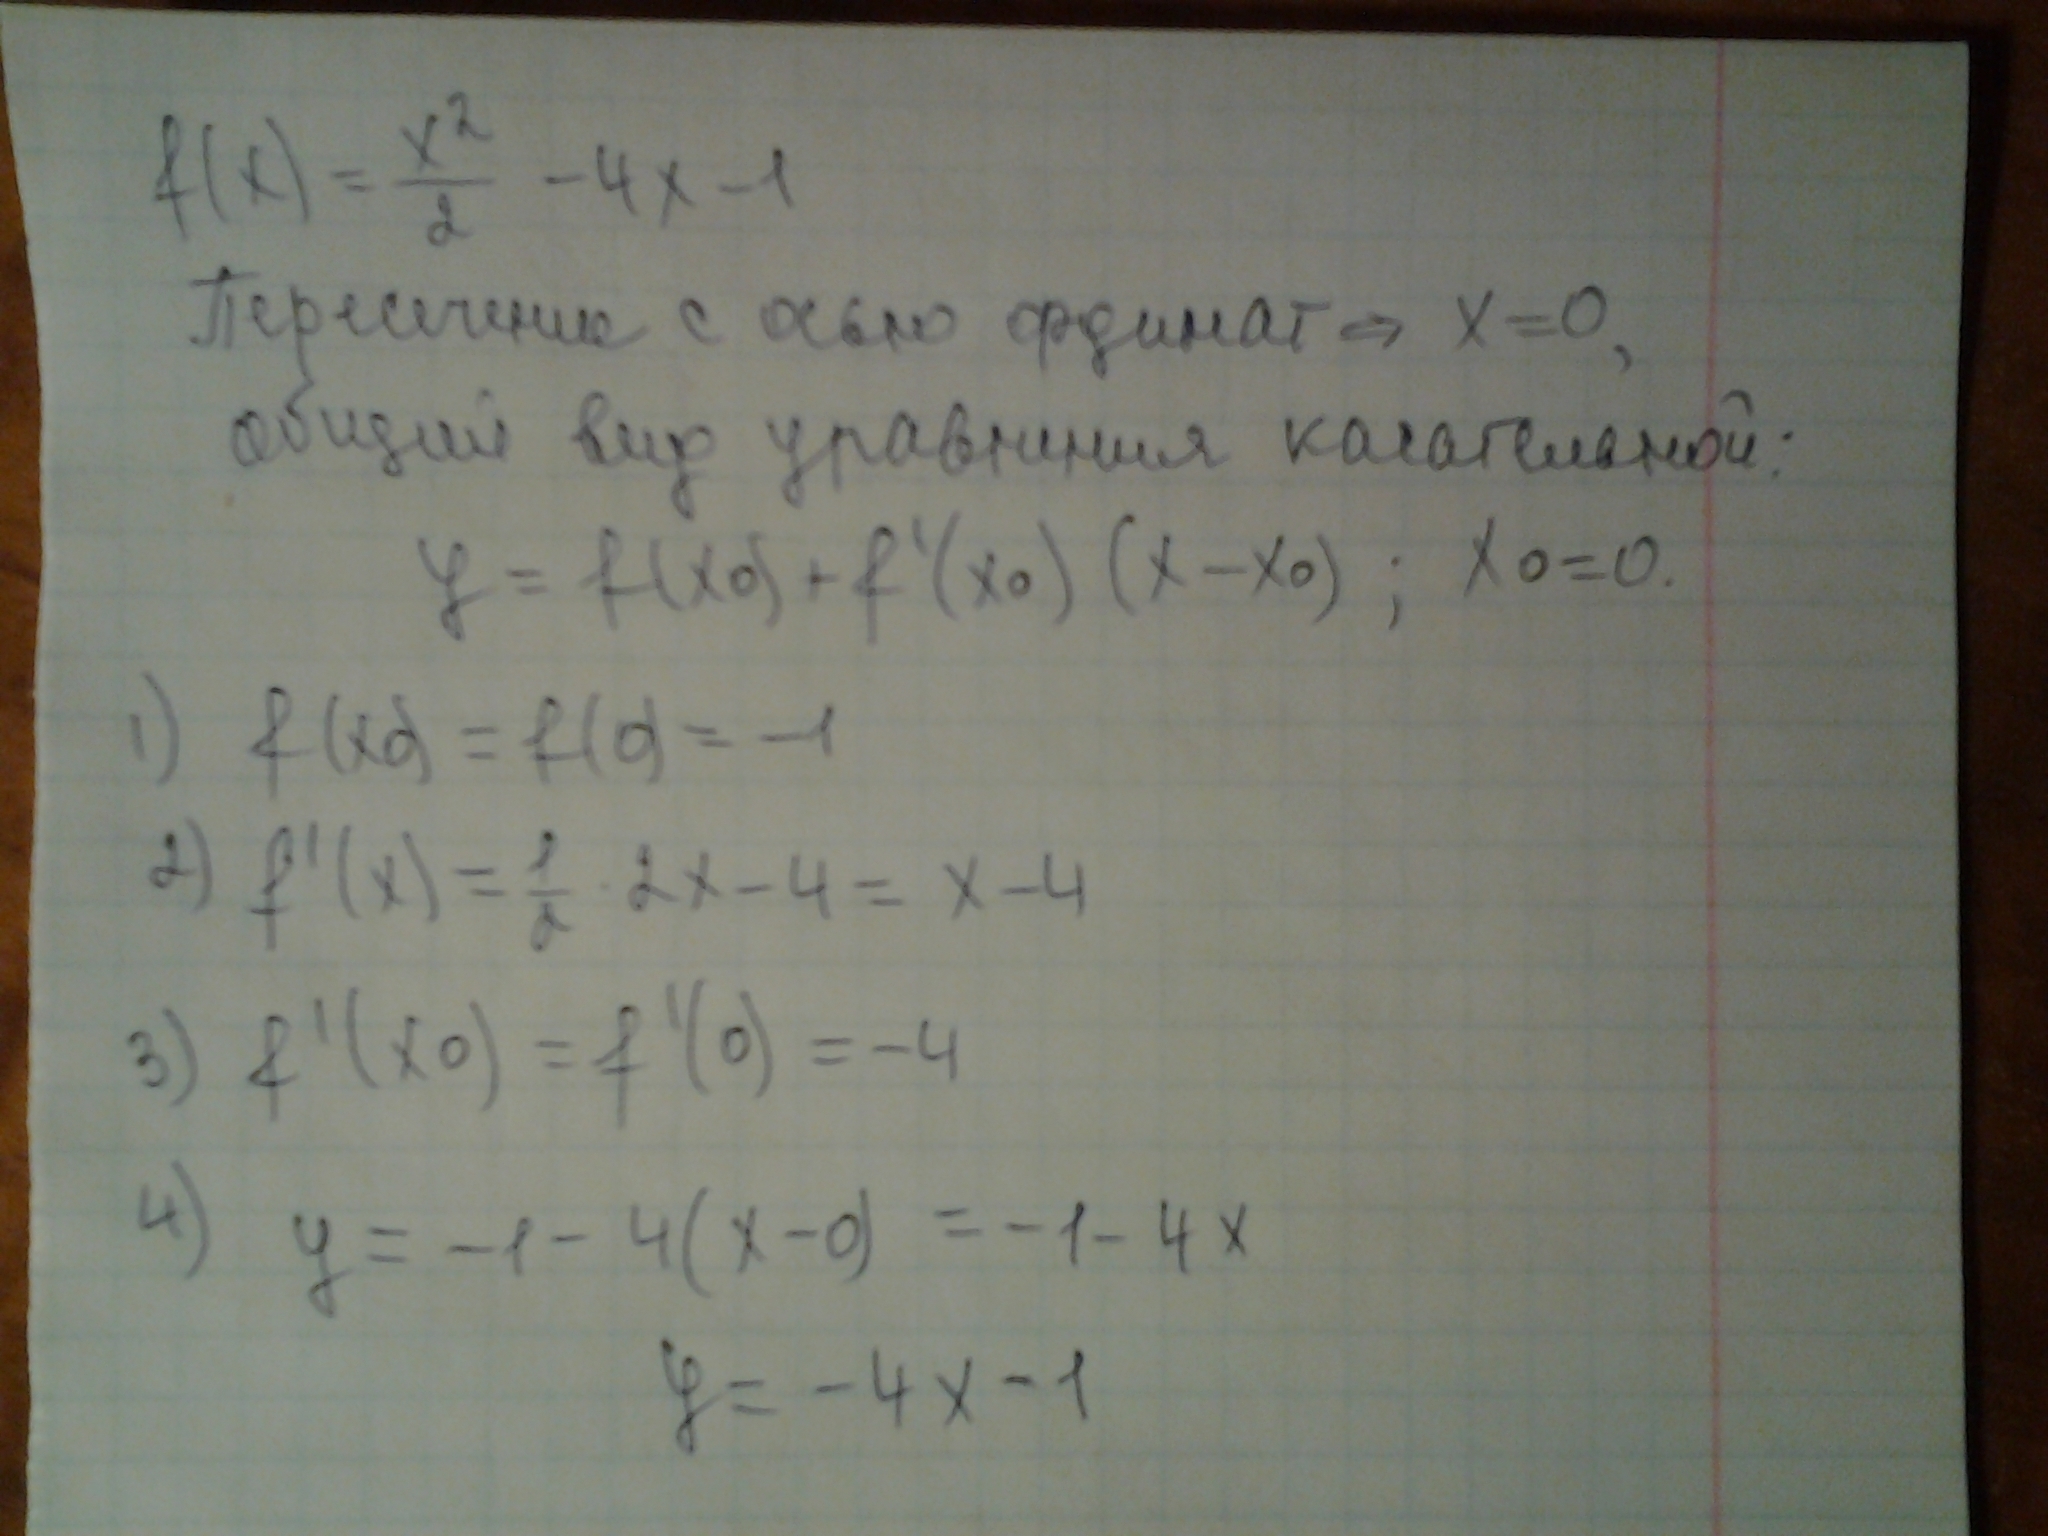 f(x) = x²/2 - 4x - 1
Пересечение с осью ординат ⇒ x = 0,
общий вид уравнения касательной:
y = f(x0) + f'(x0) (x - x0) ; x0 = 0.
1) f(x0) = f(0) = -1
2) f'(x) = 1/2 · 2x - 4 = x - 4
3) f'(x0) = f'(0) = -4
4) y = -1 - 4(x - 0) = -1 - 4x
y = -4x - 1